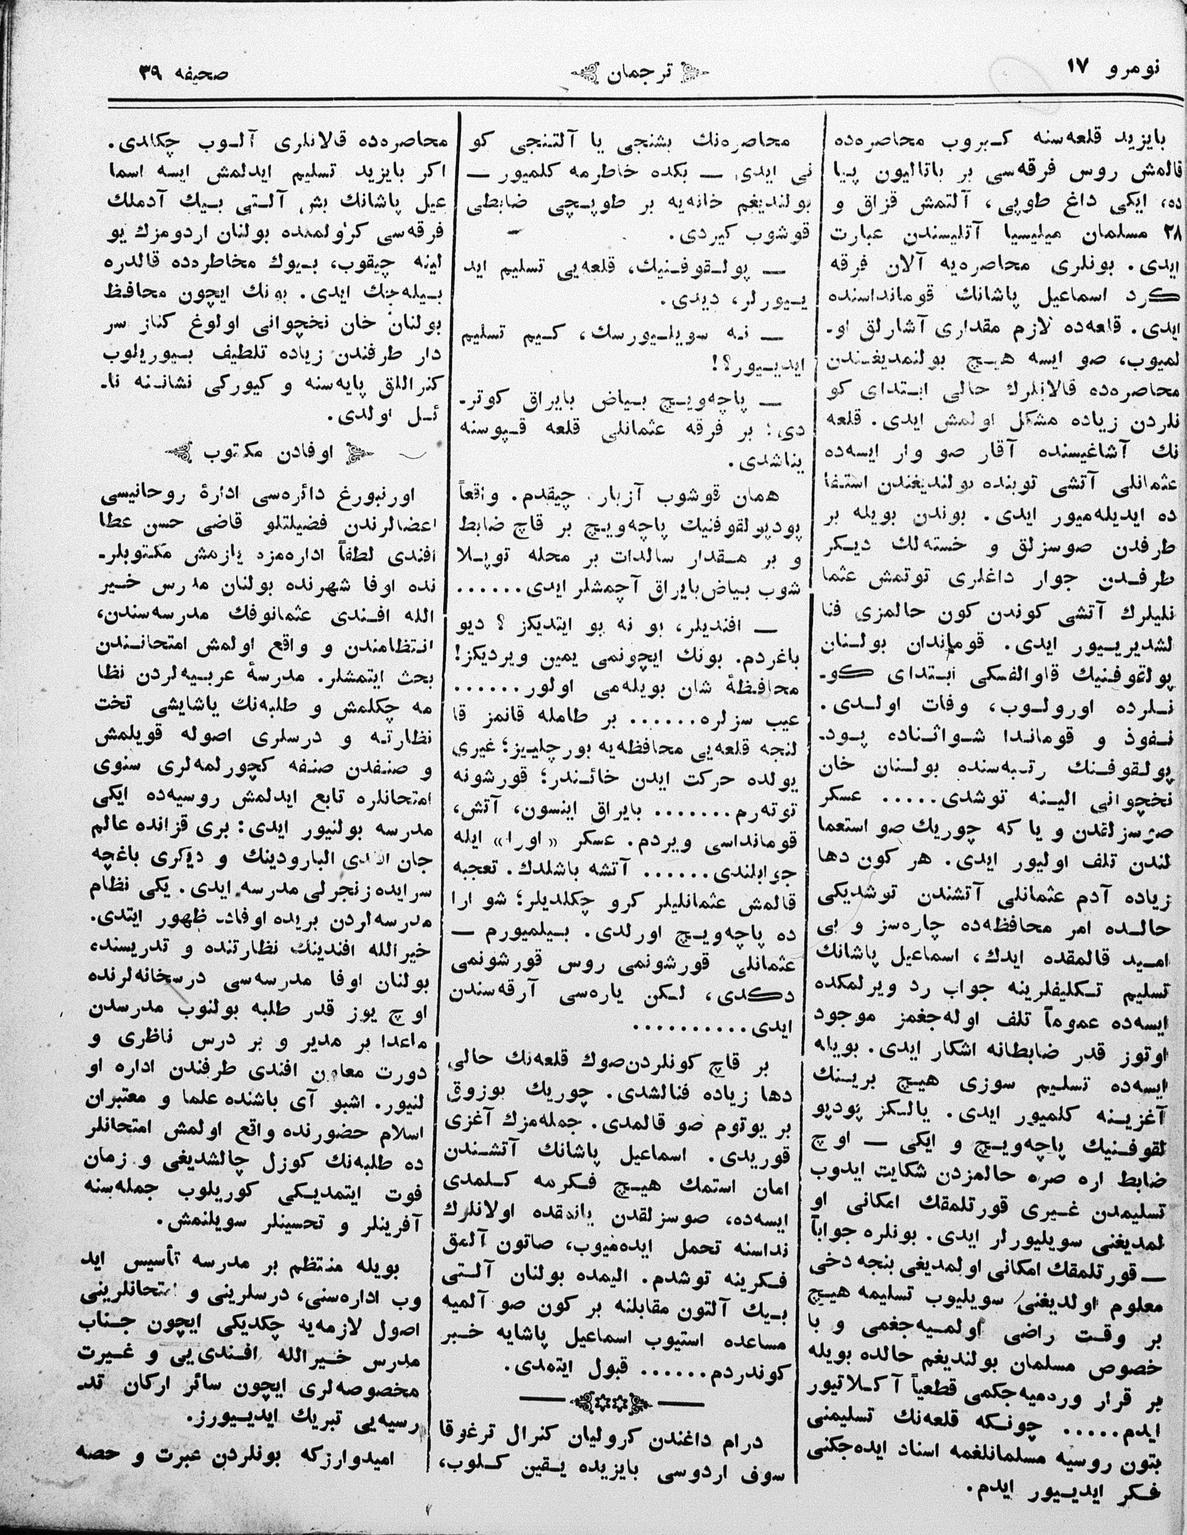 نومرو ۱۷
ترجمان
صحیفه ۳۹
بایزید قلعه‌سنه كـیروب محاصره‌ده
قالمش روس فرقه‌سی بر باتالیون پیا
ده، ایكی داغ طوپی، آلتمش قزاق و
۲۸ مسلمان میلیسیا آتلیسندن عبارت
ایدی. بونلری محاصره‌یه آلان فرقه
كرد اسماعیل پاشانك قوماندا‌سنده
ایدی. قلعه‌ده لازم مقداری آشارلق او‌ـ
لمیوب، صو ایسه هیـچ بولنمدیغـندن
محاصره‌ده قالانلرك حالی ابـتدای كو
نلردن زیاده مشكل اولمش ایدی. قلعه
نك آشاغیسنده آقار صو وار ایسه‌ده
عثمانلی آتشی توبنده بولندیغندن استفا
ده ایدیله‌میور ایدی. بوندن بویله بر
طرفدن صوسزلق و خسته‌لك دیـكر
طرفـدن جوار داغلری توتمش عثما
نلیلرك آتشی كوندن كون حالمزی فنا
لشدیریـیور ایدی. قوماندان بولـنان
پولقوفـنیك قاوالفسكی ابـتدای كو‌ـ
نـلرده اورولـوب، وفات اولـدی.
نـفوذ و قوماندا شـواثـناده پـود‌ـ
پولـقوفـنك رتـبه‌سنده بولـنان خان
نخچوانی الیـنه توشدی..... عسكر
صوسزلقدن و یا كه چوریك صو استعما
لندن تلف اولیور ایدی. هر كون دها
زیاده آدم عثمانلی آتشندن توشدیكی
حالـده امر محافظه‌ده چاره‌سز و بی
امـید قالمقده ایدك، اسماعیل پاشانك
تسلیم تـكلیفلرینه جواب رد ویرلمكده
ایسه‌ده عموماً تلف اوله‌جغمز موجود
اوتوز قدر ضابطانه اشكار ایدی. بویله
ایسه‌ده تسلیم سوزی هیـچ بریـنك
آغزیـنه كلمیور ایدی. یالـكز پودپو
لقوفـنیك پاچه‌ویـچ و ایكی — اوچ
ضابط اره صره حالمزدن شكایت ایدوب
تسلیمدن غـیری قورتلمقك امكانی او
لمدیغنی سویلیورلر ایدی. بونلره جواباً
— قورتلمقك امكانی اولمدیغی بنجه دخی
معلوم اولدیغنی سویلیوب تسلیمه هیـچ
بر وقـت راضی اولمـیه‌جغمی و با
خصوص مسلمان بولندیغم حالده بویله
بر قرار ورده‌میه‌جكمی قطعیاً آكـلاتیور
ایدم..... چونـكه قلعه‌نك تسلیمنی
بتون روسیه مسلمانلغمه اسناد ایده‌جكنی
فـكر ایدیـیور ایدم.
محاصره‌نك بشنجی یا آلتنجی كو
نی ایدی — بكده خاطرمه كلمیور —
بولندیغم خانه‌یه بر طوپـچی ضابطی
قوشوب كیردی.
— پولـقوفـنیك، قلعه‌یی تسلیم اید
یـیورلر، دیدی.
— نه سویلـیورسك، كـیم تسلیم
ایدیـیور؟!
— پاچه‌ویـچ بـیاض بایراق كوتر‌ـ
دی؛ بر فرقه عثمانلی قلعه قـپوسنه
یناشدی.
همان قوشوب آزبار چیقدم. واقعاً
پودپولقوفنیك پاچه‌ویـچ بر قاچ ضابط
و بر مـقدار سالدات بر محله توپـلا
شوب بـیاض بایراق آچمشلر ایدی......
— افندیلر، بو نه بو ایتدیكز؟ دیو
باغردم. بونك ایچونمی یمین ویردیكز!
محافظهٔ شان بویله‌می اولور......
عیب سزلره...... بر طامله قانمز قا
لنجه قلعه‌یی محافظه‌یه بورچلیـیز؛ غیری
یولده حركت ایدن خائـندر؛ قورشونه
توته‌رم....... بایراق اینسون، آتش،
قومانداسی ویردم. عسكر «اورا» ایله
جوابلندی...... آتشه باشلدك. تعجبه
قالمش عثمانلیلر كرو چكلدیلر؛ شو ارا
ده پاچه‌ویـچ اورلدی. بـیلمیورم —
عثمانلی قورشونمی روس قورشونمی
دكدی، لـكن یاره‌سی آرقه‌سندن
ایدی..........
بر قاچ كونلردن صوك قلعه‌نك حالی
دها زیاده فنالشدی. چوریك بوزوق
بر یوتوم صو قالمدی. جمله‌مزك آغزی
قوریدی. اسماعیل پاشانك آتشـندن
امان استمك هیـچ فـكرمه كـلمدی
ایسه‌ده، صوسزلقدن یانمقده اولانلرك
نداسنه تحمل ایده‌میوب، صاتون آلمق
فـكرینه توشدم. الیمده بولنان آلـتی
بـیك آلتون مقابلنه بر كون صو آلمیه
مساعده استیوب اسماعیل پاشایه خـبر
كوندردم...... قبول ایتمدی.
درام داغندن كرولیان كنرال ترغوقا
سوف اردوسی بایزیده یـقین كـلوب،
محاصره‌ده قالانلری آلـوب چكلدی.
اكر بایزید تسلیم ایدلمش ایسه اسما
عیل پاشانك بش آلـتی بـیك آدملك
فرقه‌سی كرولمقده بولنان اردومزك یو
لینه چیقوب، بـیوك مخاطره‌ده قالدره
بـیله‌جك ایدی. بونك ایچون محافظ
بولنان خان نخچوانی اولوغ كناز سر
دار طرفندن زیاده تلطیف بـیوریلوب
كنراللق پایه‌سنه و كیوركی نشانـنه نا‌ـ
ئـل اولدی.
اوفادن مكتوب
اورنبورغ دائره‌سی ادارهٔ روحانیسی
اعضالرندن فضیلتلو قاضی حسن عطا
افندی لطفاً اداره‌مزه یازمش مكتوبلر‌ـ
نده اوفا شهرنده بولنان مدرس خـیر
الله افـندی عثمانوفك مدرسه‌سندن،
انـتظامندن و واقع اولمش امتحانـندن
بحث ایتمشلر. مدرسهٔ عربـیه‌لردن نظا
مه چكلمش و طلبه‌نك یاشایشی تخت
نظارتـه و درسلری اصوله قویلمش
و صنـفدن صنـفه كچورلمه‌لری سنوی
امتحانلره تابع ایدلمش روسیه‌ده ایكی
مدرسه بولنیور ایدی: بری قزانده عالم
جان افندی البارودینك و دیكری باغچه
سرایده زنجرلی مدرسه ایدی. یكی نظام
مدرسه‌لردن بریده اوفاده ظهور ایتدی.
خیرالله افندینك نظارتنده و تدریسنده
بولنان اوفا مدرسه‌سی درسخانه‌لرنده
اوچ یوز قدر طلبه بولنوب مدرسدن
ماعدا بر مدیر و بر درس ناظری و
دورت معاون افندی طرفندن اداره او
لنیور. اشبو آی باشنده علما و معتبران
اسلام حضورنده واقع اولمش امتحانلر
ده طلبه‌نك كوزل چالشدیغی و زمان
فوت ایتمدیـكی كوریلوب جمله‌سنه
آفرینلر و تحسینلر سویلنمش.
بویله منـتظم بر مدرسه تأسیس اید
وب اداره‌سنی، درسلرینی و امتحانلرینی
اصول لازمه‌یه چكدیكی ایچون جـناب
مدرس خـیرالله افـندی‌یی و غـیرت
مخصوصه‌لری ایچون سائر اركان تد‌ـ
رسیه‌یی تبریك ایدیـیورز.
امیدوارزكه بونلردن عبرت و حصه